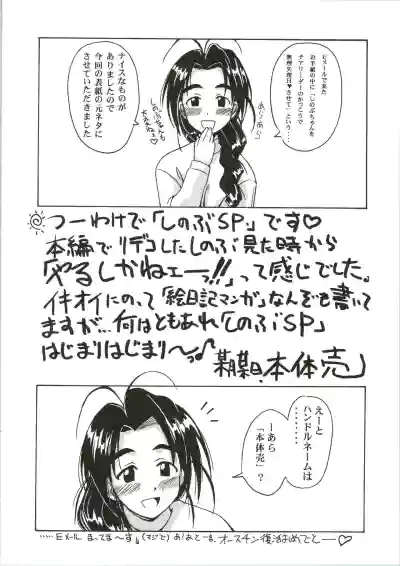 Eメールで来た
お手紙の中に「しのぶちゃんを
チアリーダーのかっこうで
無理矢理H♥させて」という…
ナイスなものが
ありましたので
今回の表紙の元ネタに
させていただきました
あらあら
しのぶちゃんも
大変ねェ♡
つーわけで「しのぶSP」です♡
本編でリデコしたしのぶ見た時から
「やるしかねェーっ!!」って感じでした。
イキオイにのって「絵日記マンガ」なんぞを書いて
ますが…何はともあれ「しのぶSP」
はじまりはじまり〜っ♪
某月某日.本体売
えーと
ハンドルネームは
………
ーあら
「本体売」?
……Eメールまってまーす。(マジで)あ!あと一言、オースチン復活おめでとー♡